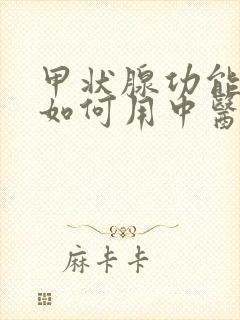 甲状腺功能
如何用中醫
麻卡卡